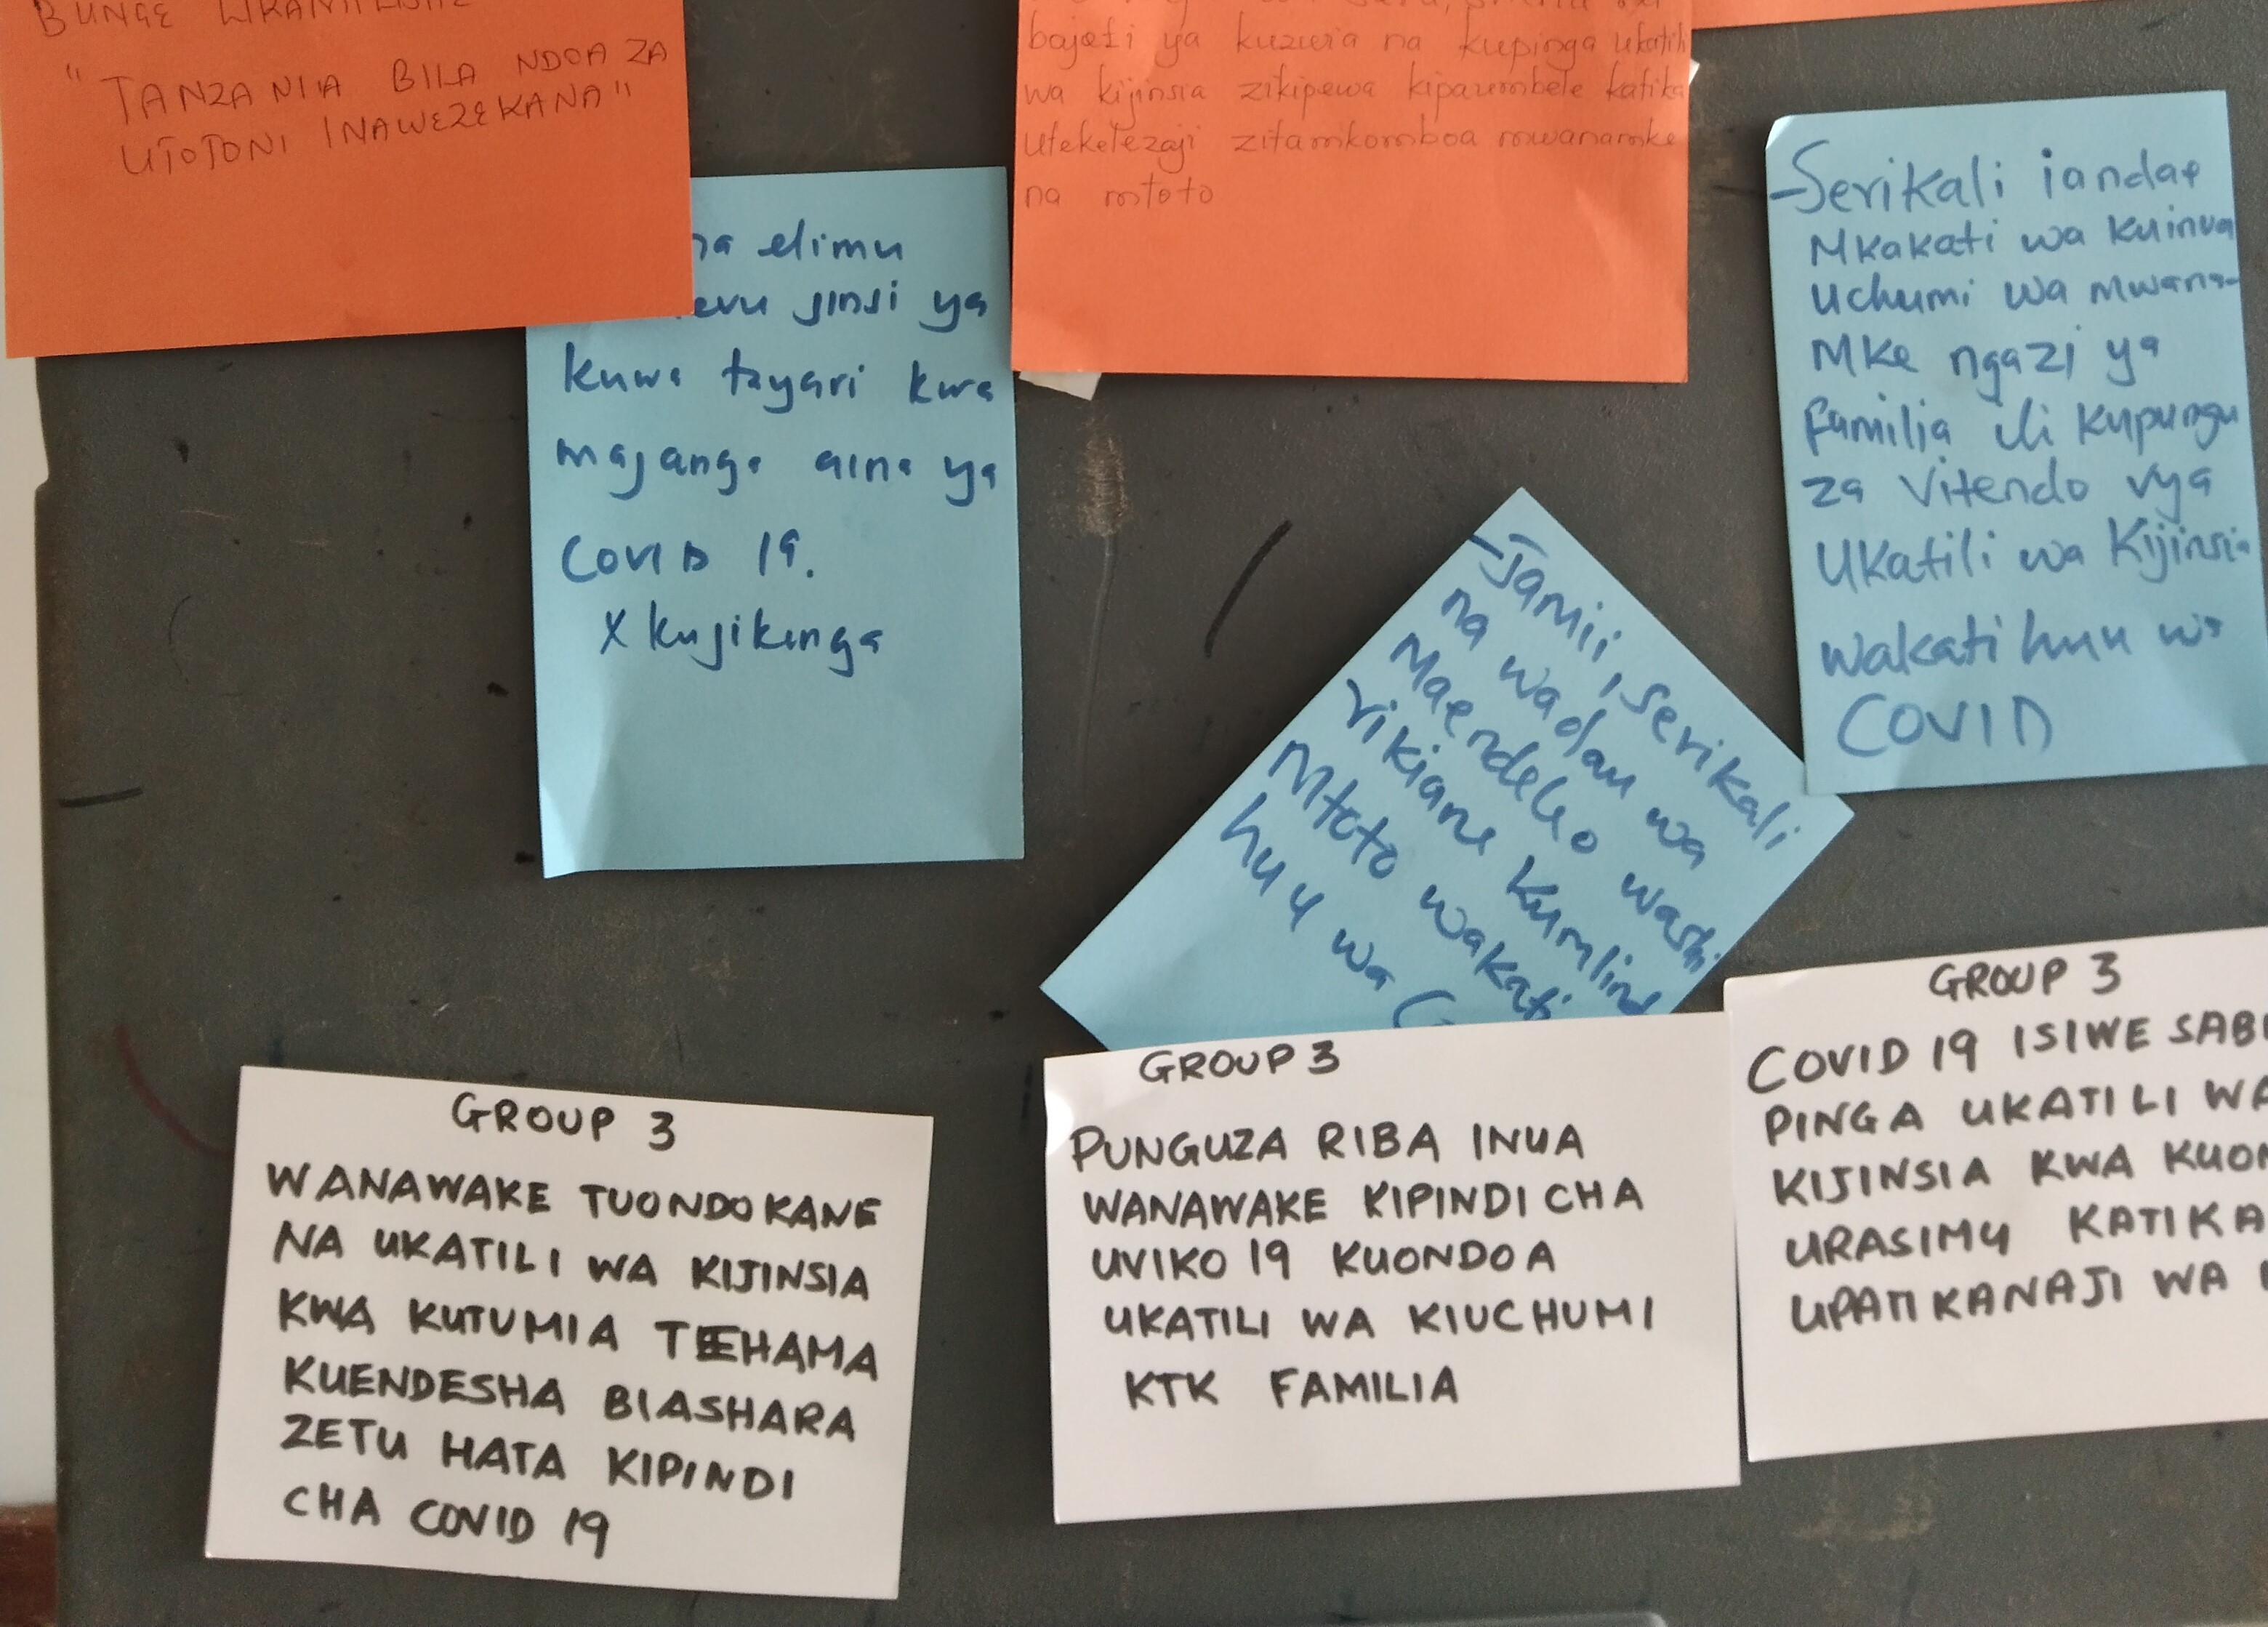 BUNGE
"TANZANIA BILA NDOA ZA
UTOTONI INAWEZEKANA"
bajeti ya kuzuia na kupinga ukatili
wa kijinsia zikipewa kipaumbele katika
utekelezaji zitamkomboa mwanamke
na mtoto
elimu
jinsi ya
kuwa tayari kwa
majanga aina ya
COVID 19.
x kujikinga
-Serikali iandae
Mkakati wa kuinua
Uchumi wa Mwana-
Mke ngazi ya
familia ili kupungu
za Vitendo vya
Ukatili wa Kijinsia
wakati huu wa
COVID
-Jamii, Serikali
na wadau wa
Maendeleo washi
rikiane kumlind
Mtoto wakati
huu wa
GROUP 3
WANAWAKE TUONDOKANE
NA UKATILI WA KIJINSIA
KWA KUTUMIA TEEHAMA
KUENDESHA BIASHARA
ZETU HATA KIPINDI
CHA COVID 19
GROUP 3
PUNGUZA RIBA INUA
WANAWAKE KIPINDI CHA
UVIKO 19 KUONDOA
UKATILI WA KIUCHUMI
KTK FAMILIA
GROUP 3
COVID 19 ISIWE SAB
PINGA UKATILI WA
KIJINSIA KWA KUO
URASIMU KATIKA
UPATIKANAJI WA